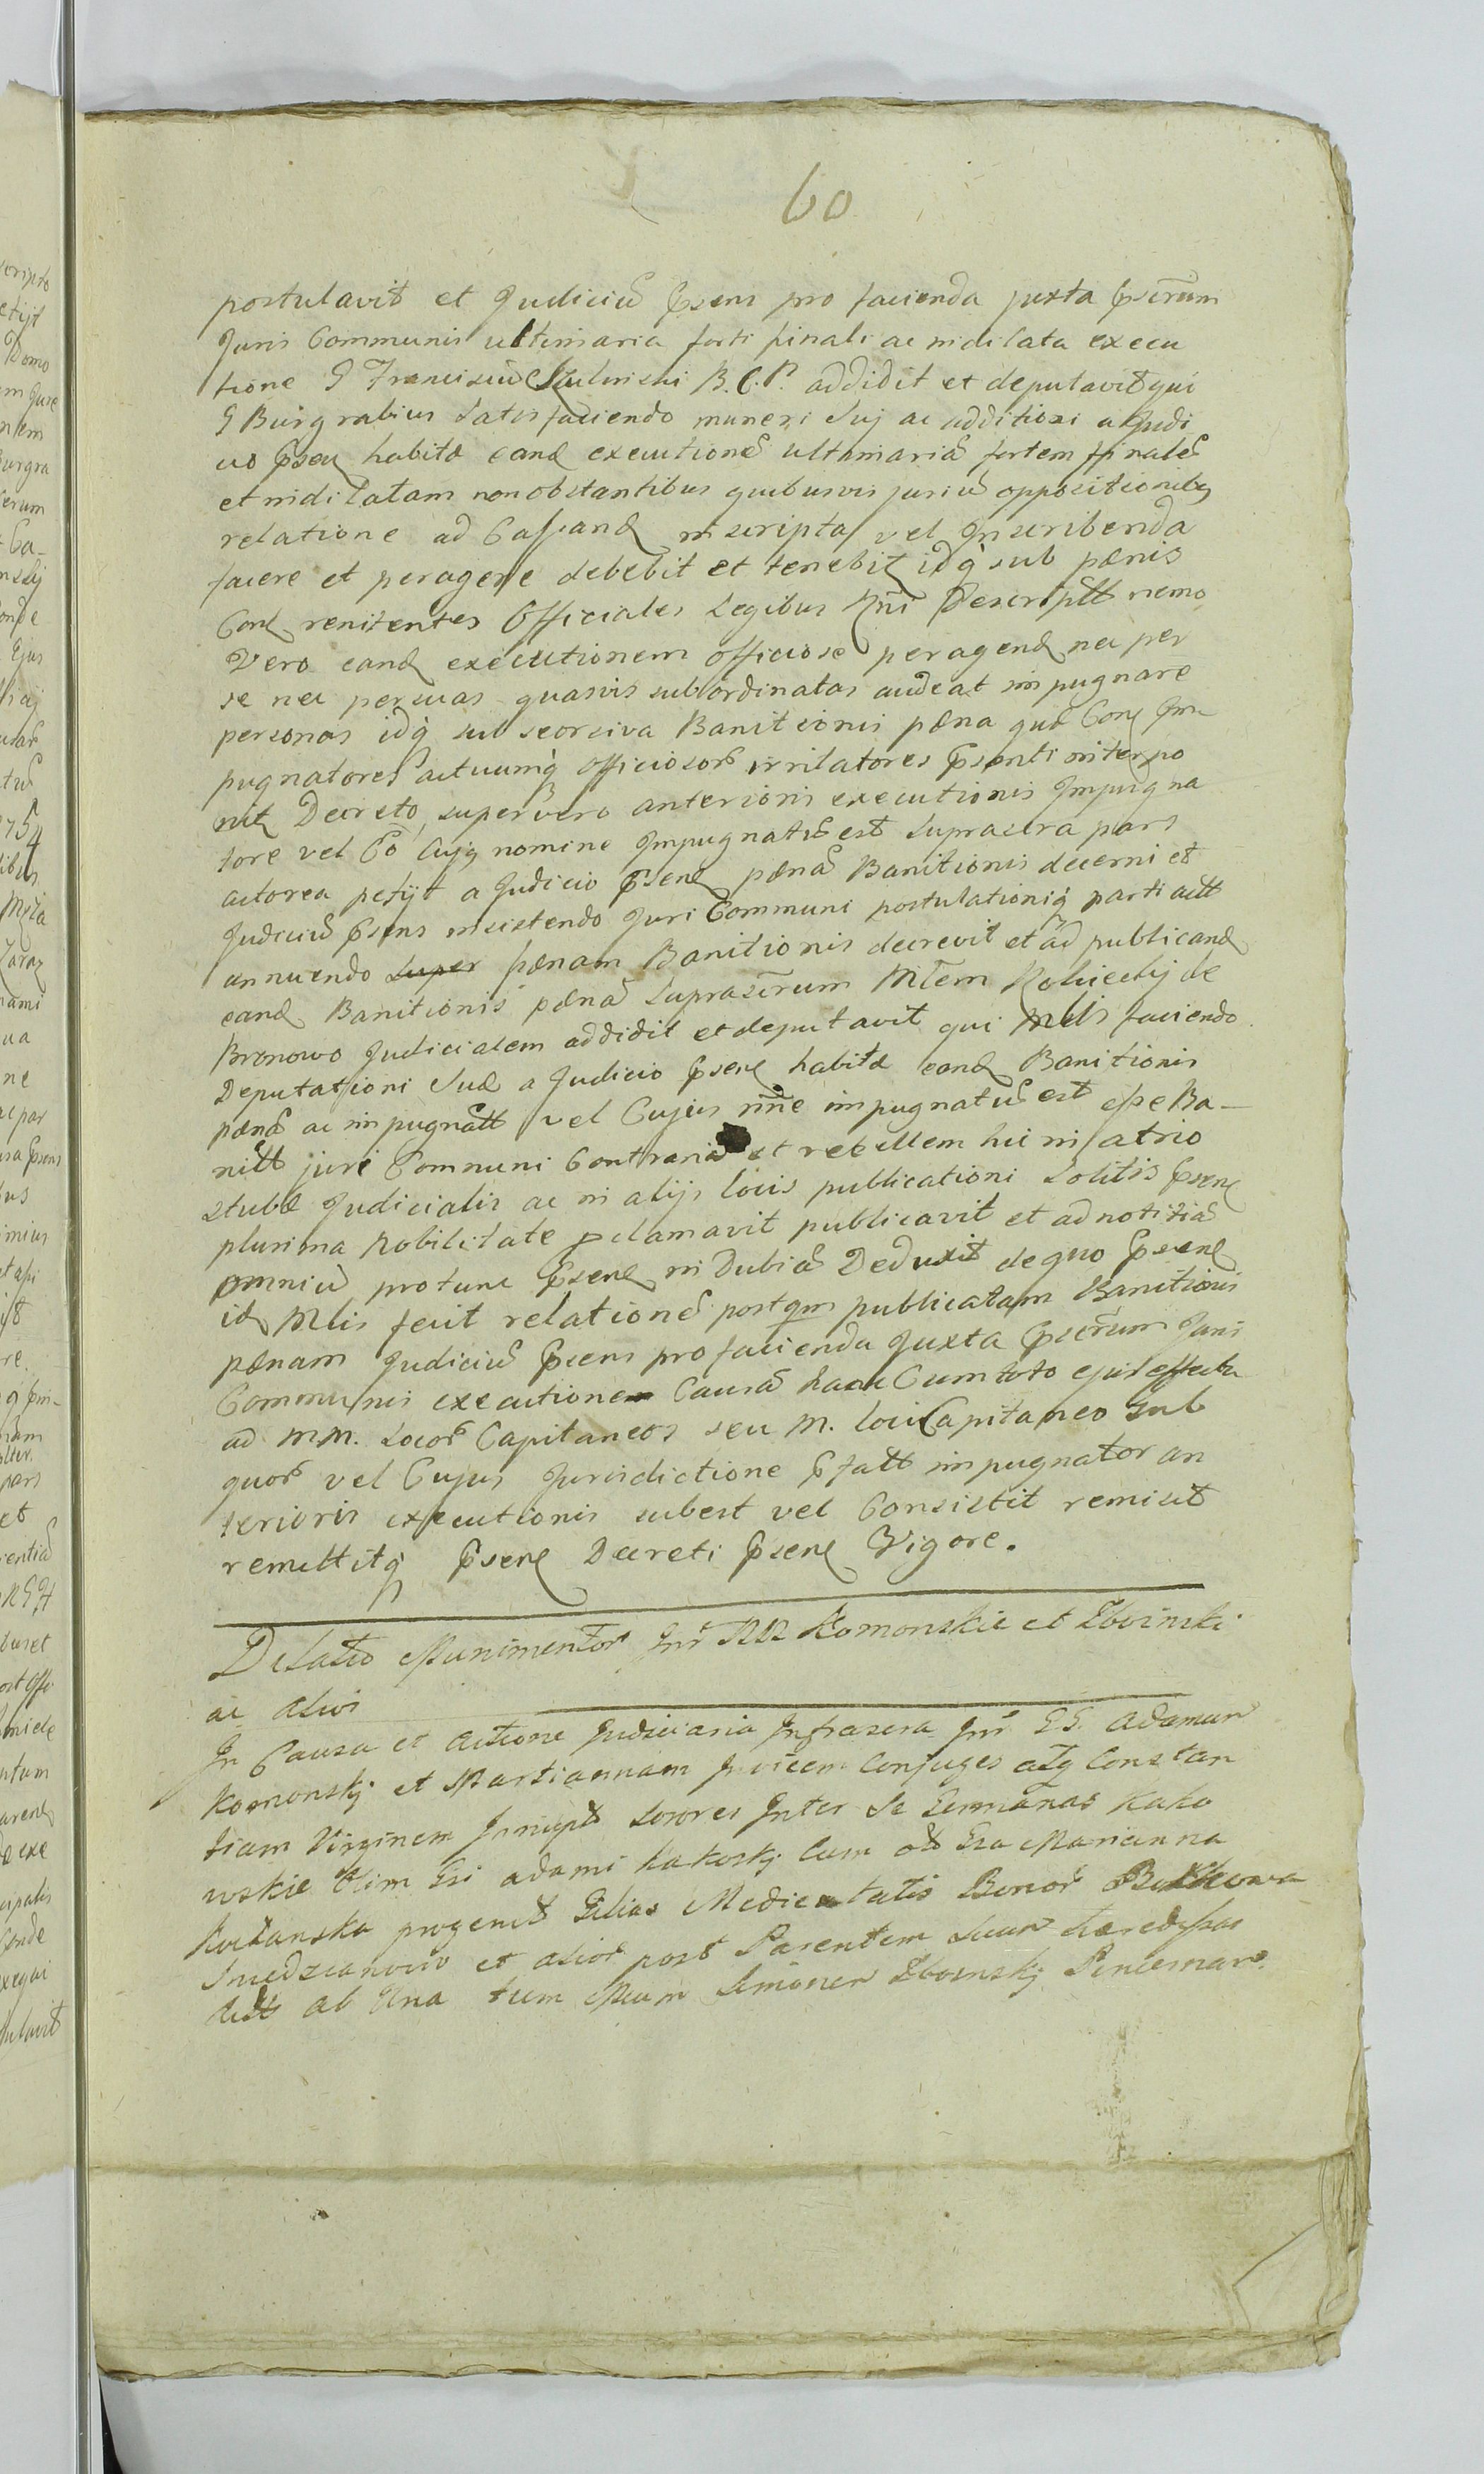 60
postulavit et Judiciũ Psens pro facienda juxta pscrũm
Juris Communis ultimaria forti finali ac indilata execu
tione G Franciscũ B. C. P. addidit et deputavit qui
G Burgrabius Satisfaciendo muneri Suj ac additioni a Judi
cio Psen habitæ eand executionẽ ultimariã fortem finalẽ
et indilatam non obstantibus quibusvis juriũ oppositionibq
relatione ad Cassand inscripta vel Inscribenda
facere et peragere debebit et tenebit idq sub pænis
Con renitentes Officiales Legibus Rni Descriptt nemo
Vero eand executionem officiose peragend nec per
se nec per suas quasvis subordinatas audeat impugnare
personas idq sub seorsiva Banitionis pæna quã Con Im
pugnatores actuumq officiosor irritatores Psenti interpo
nit Decreto, super vero anterioris executionis Impugna
tore vel Eo Cujq nomine Impugnatũ est Suprascra pars
actorea petijt a Judicio Psen pænã Banitionis decerni et
Judiciũ Psens insistendo Juri Communi postulationiq parti actt
annuendo super pænam Banitionis decrevit et ad publicand
eand Banitionis pænã Suprascrum Mtem de
Bronowo Judicialem addidit et deputavit qui Mlis faciendo
Deputationi Suæ a Judicio Psen habitæ eand Banitionis
pænã ac impugnatt vel Cujus nñe impugnatũ est esse Ba-
nitt juri Communi Contrariũ et rebellem hic in atrio
stubæ Judicialis ac in alijs locis publicationi Solitis Psen
plurima Nobilitate pclamavit publicavit et ad notitiã
omniũ protunc Psen indubiã Deduxit de quo Psen
id Mlis fecit relationẽ postqm publicatam Banitionis
pænam Judiciũ Psens pro facienda Juxta Pscrũm Juris
Communis executione Causã hanc Cum toto ejus effectu
ad MM. Locor Capitaneos seu M. loci Capitaneo sub
quor vel Cujus Jurisdictione Pfatt impugnator an
terioris executionis subest vel Consistit remisit
remittitq Psen Decreti Psen Vigore.
Delatio Munimentor Inr RR Komonskie et Zboinski
ac alios
In Causa et Actione Judiciaria Infrascra Inr GG. Adamum
Komonskj et Martiannam Invicem Conjuges atq Constan
tiam Virginem Innupt Sorores Inter Se Germanas Kako
wskie Olim Gsi Adami Kakoskj Cum olt Gsa Marianna
progenit Filias Medietatis Bonor
et alior post Parentem Suum hæredissas
Actt ab Una tum Mcum Simonem Zboinskj Pincernam